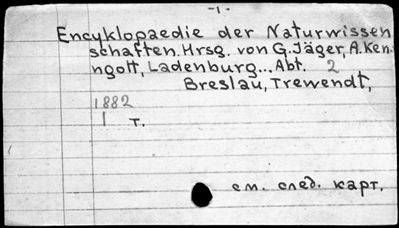 - 1 -
Encyklopaedie der Naturwissen
schaften. Hrsg. von G. Jäger, A. Ken.
ngott, Ladenburg... Abt. 2
Breslau, Trewendt,
1882
1 т.
см. след. карт.